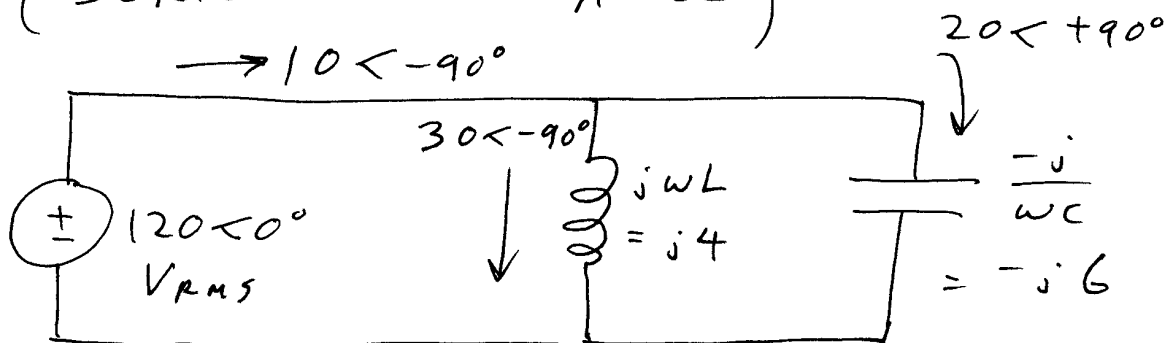 20<+90°
→10<-90°
30<-90°
+
-
120<0°
V RMS
jωL
= j4
-j
ωC
= -j6